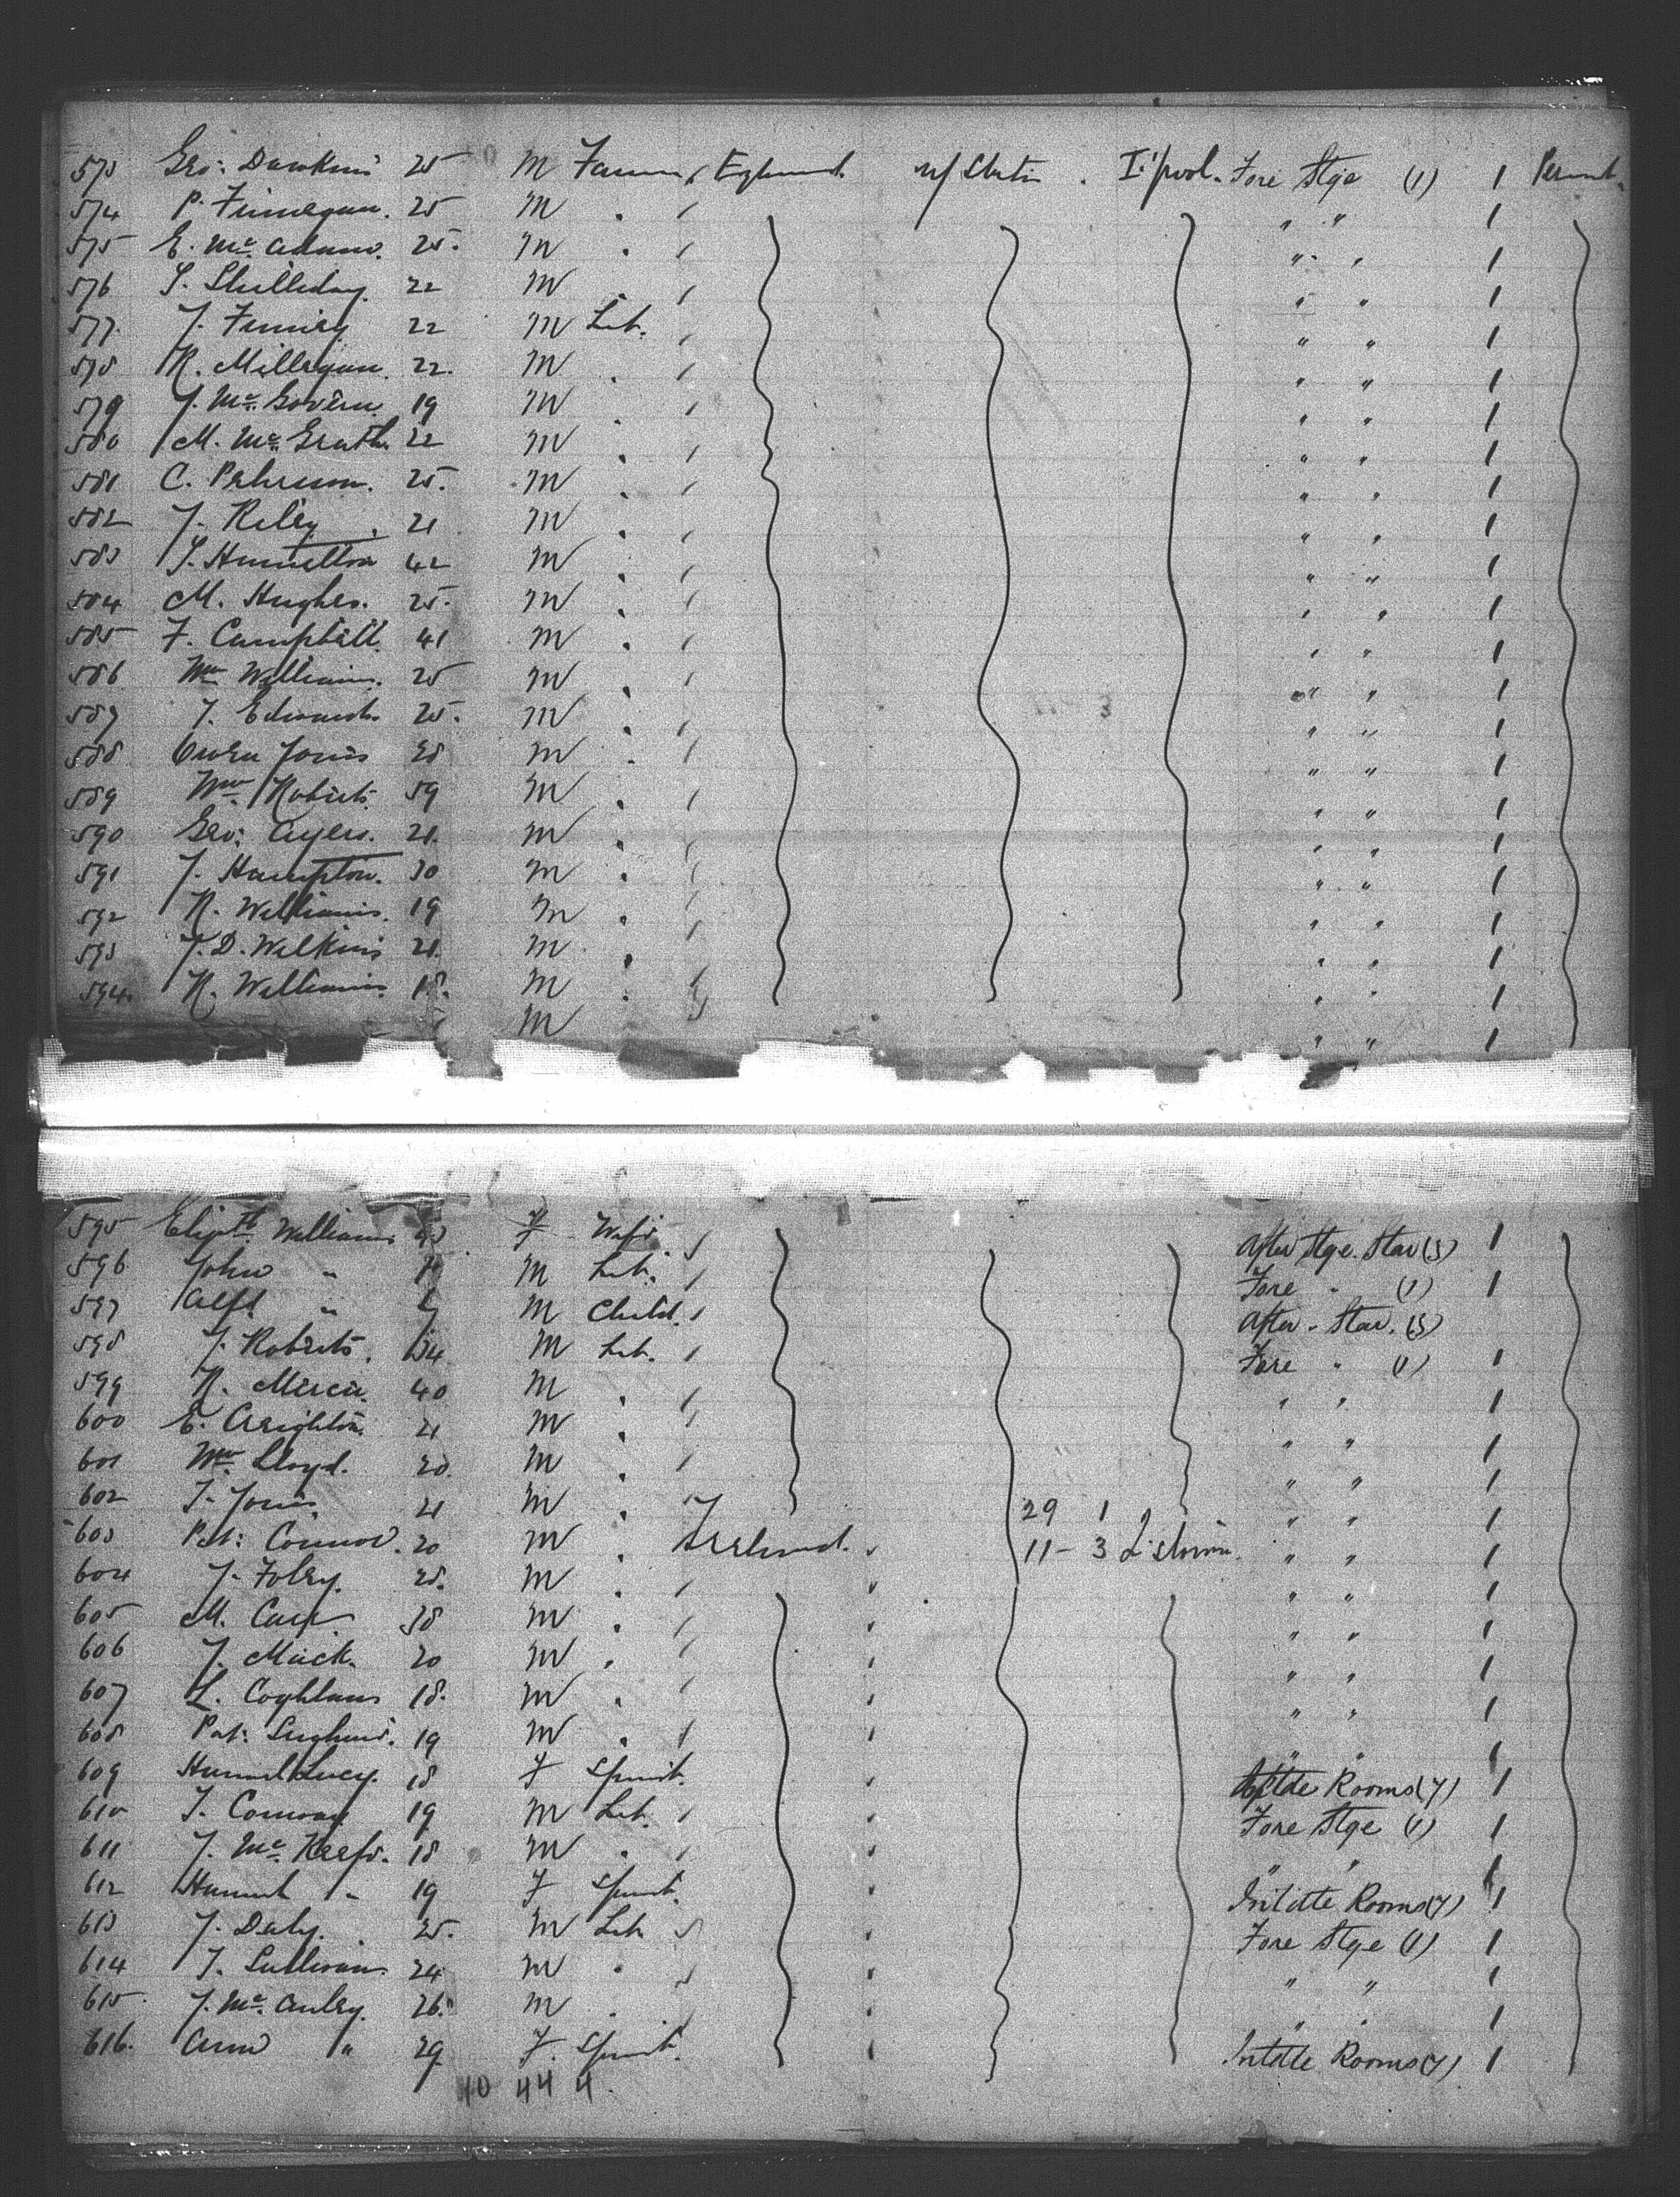 573 Geo: Dawkins 25 M Farmer England U/States L'pool. Fore Stge (1) 1
574 P. Finnegan. 25 M " " 1
575 E. Mc Adam. 25. M " " 1
576 S. Shilliday 22 M " " 1
577. J. 22 M Lab. " " 1
578 R. Milligan. 22. M " " 1
579 J. Mc Govern. 19 M " " 1
580 M. Mc Grath. 22 M " " 1
581 C. Pehrsson. 25. M " " 1
582 J. Riley 21 M " " 1
583 S. Hamilton 42 M " " 1
584 M. Hughes. 25. M " " 1
585 F. Campbell. 41 M " " 1
586 Wm Williams. 25 M " " 1
587 J. Edwards 25. M " " 1
588 Owen Jones 28 M " " 1
589 Wm Roberts. 59 M " " 1
590 Geo: Ayers. 21. M " " 1
591 J. Hampton. 30 M " " 1
592 R. Williams. 19 M " " 1
593 J. D. Wilkins 21. M " " 1
594. R. Williams. 18. M " " 1
M " " 1
595 Elizth Williams F Wife After Stge. Star (S) 1
596 John " M Lab. Fore " (1) 1
597 Alfd " M Child. After " Star. (S)
598 J. Roberts. 34 M Lab. Fore " (1) 1
599 R. Mercer 40 M " " 1
600 E. Creighton. 21 M " " 1
601 Wm Lloyd. 20. M " " 1
602 J. Jones 21 M 29 1 " " 1
603 Pat: Connor. 20 M Ireland. 11 - 3 " " 1
604 J. Foley. 25. M " " 1
605 M. Carr 38 M " " 1
606 J. Mack. 20 M " " 1
607 L. Coghlan 18. M " " 1
608 Pat: 19 M " " 1
609 Hannah Lucy. 18 F Spinst. Rooms (7) 1
610 J. Conway 19 M Lab. Fore Stge (1) 1
611 J. Mc Keefe. 18 M " " 1
612 Hannah " 19 F Spinst. Intdte Rooms (7) 1
613 J. Daly. 25. M Lab Fore Stge (1) 1
614 J. Sullivan. 24 M " " 1
615. J. Mc Auley. 26. M " " 1
616. Ann " 29 F. Spinst. Intdte Rooms (7) 1
40 44 4.